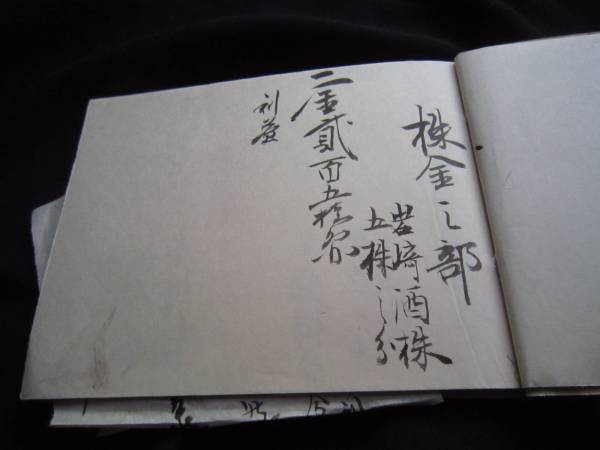 株金之部
岩崎酒株
五株之分
一金貳百五拾円
利益